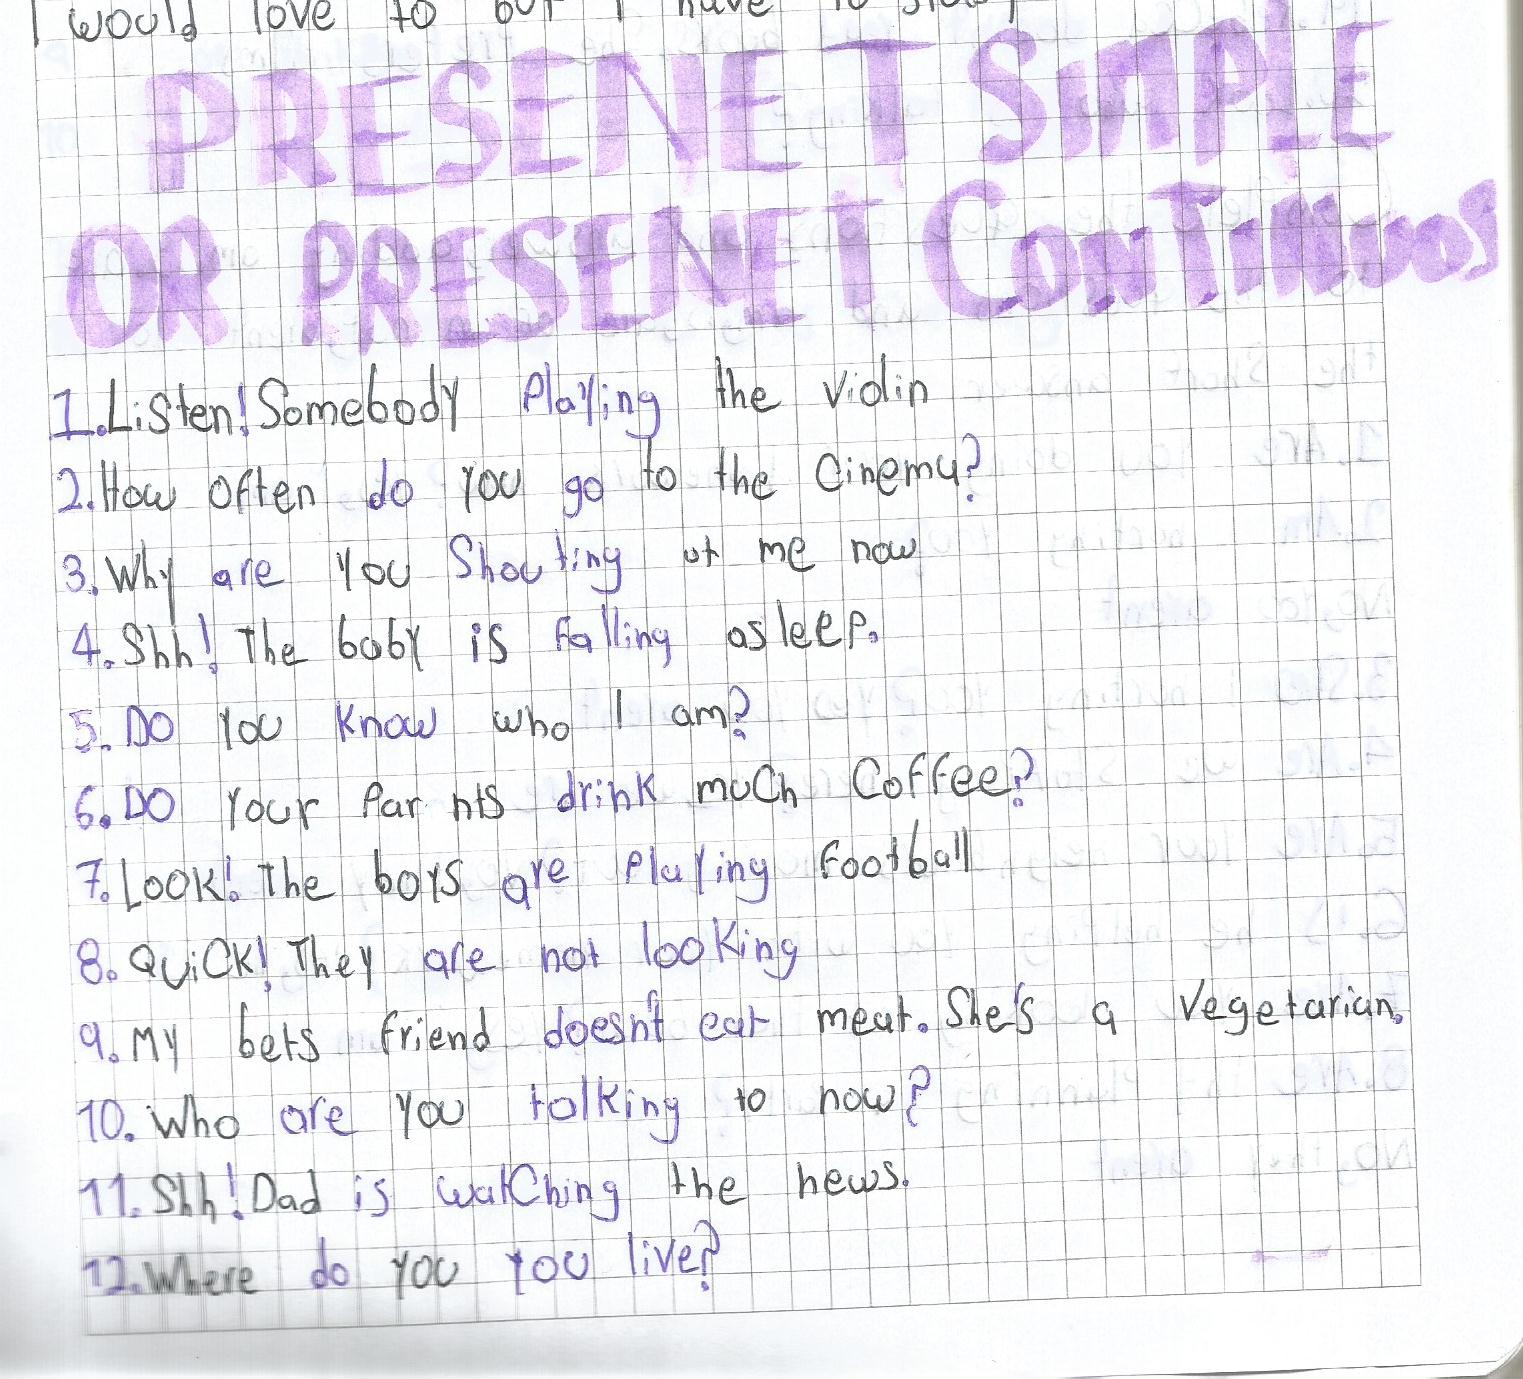 I would love to but I have to study
PRESENET SIMPLE
OR PRESENET CONTINUOS
1. Listen! Somebody Playing the violin
2. How often do you go to the cinema?
3. Why are you Shouting at me now
4. Shh! The baby is falling asleep.
5. DO you know who I am?
6. DO your Parnts drink much Coffee?
7. LOOK! The boys are Playing Football
8. QuiCK! They are not looking
9. My bets friend doesn't eat meat. She's a Vegetarian.
10. Who are you talking to now?
11. Shh! Dad is watching the news.
12. Where do you you live?